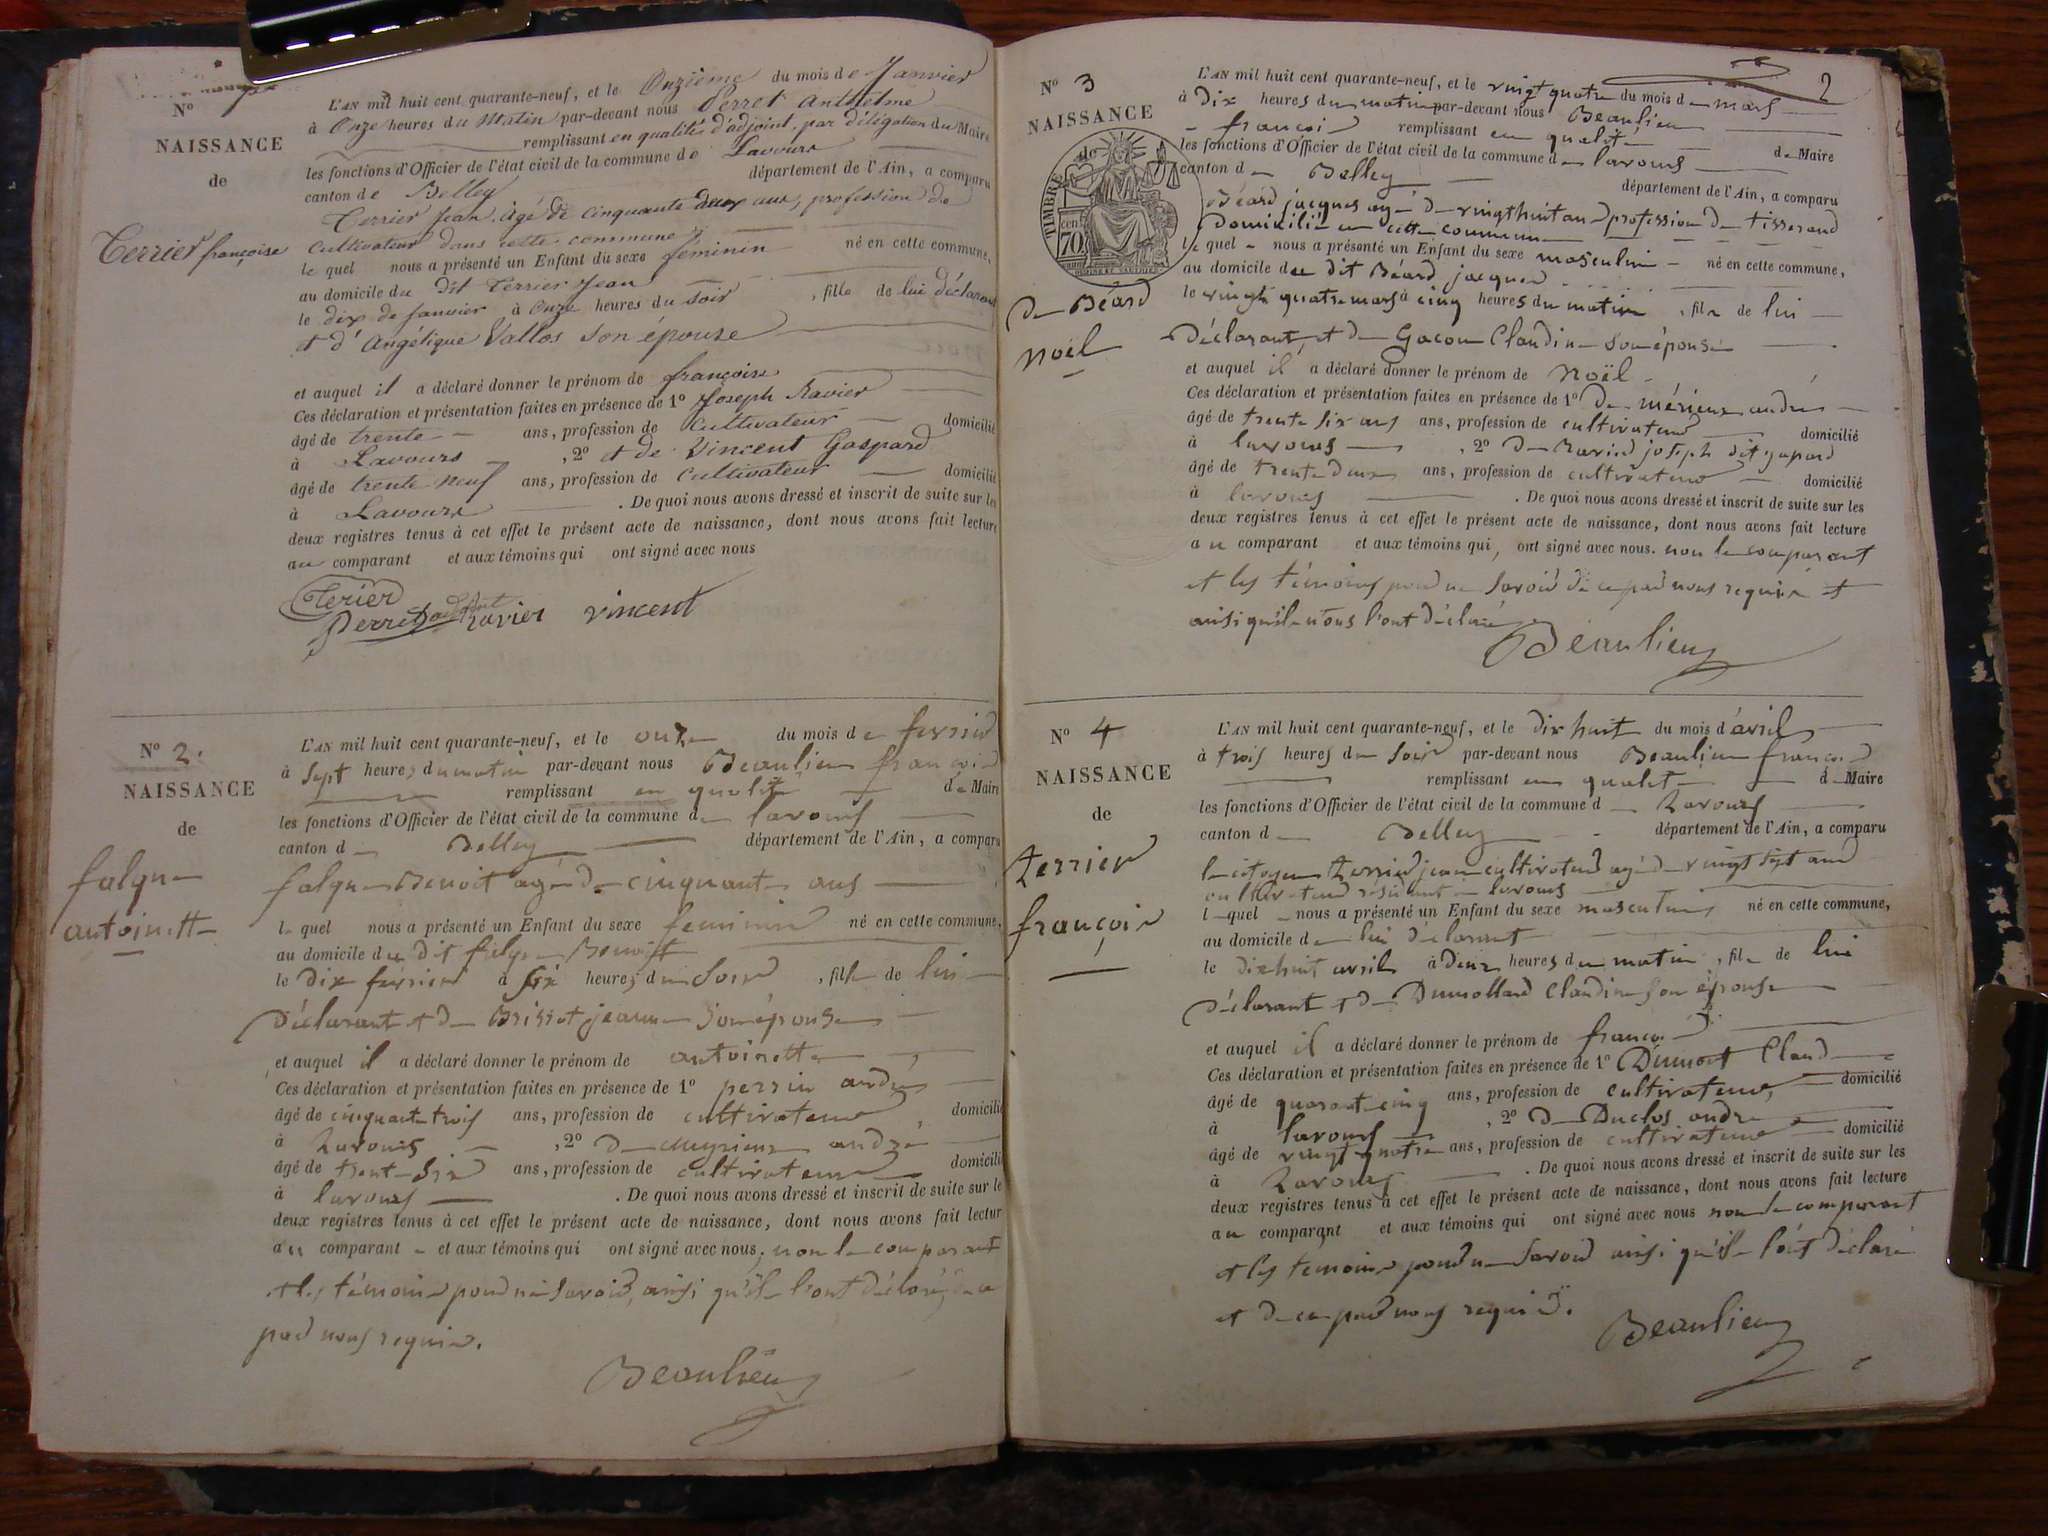 N° 1
NAISSANCE
de
Terrier françoise
L'AN mil huit cent quarante-neuf, et le Onzième du mois de Janvier
à Onze heures du Matin par-devant nous Perret Anthelme
remplissant en qualités d'adjoint, par déligation du Maire
les fonctions d'Officier de l'état civil de la commune de Lavours
canton de Belley département de l'Ain, a comparu
Terrier Jean, âgé de cinquante deux ans, profession de
Cultivateur dans cette commune
le quel nous a présenté un Enfant du sexe féminin né en cette commune,
au domicile du dit Terrier Jean
le dix de janvier à Onze heures du soir , fille de lui déclarant
et d'Angélique Vallos son épouse
et auquel il a déclaré donner le prénom de françoise
Ces déclaration et présentation faites en présence de 1° Joseph Ravier
âgé de trente ans, profession de Cultivateur domicilié
à Lavours , 2° et de Vincent Gaspard
âgé de trente neuf ans, profession de Cultivateur domicilié
à Lavours . De quoi nous avons dressé et inscrit de suite sur les
deux registres tenus à cet effet le présent acte de naissance, dont nous avons fait lecture
au comparant et aux témoins qui ont signé avec nous
Terier
Perret ravier vincent
N° 2.
NAISSANCE
de
falque
antoinette
L'AN mil huit cent quarante-neuf, et le onze du mois de fevrier
à sept heures du matin par-devant nous Beaulieu françois
remplissant en qualité de Maire
les fonctions d'Officier de l'état civil de la commune de lavours
canton de Belley département de l'Ain, a comparu
falque Benoit agé de cinquante ans
le quel nous a présenté un Enfant du sexe feminin né en cette commune,
au domicile du dit falque Benoitt
le dix fevrier à six heures du soir , fille de lui
déclarant et de Brissot jeanne son épouse
et auquel il a déclaré donner le prénom de antoinette
Ces déclaration et présentation faites en présence de 1° perrin andré
âgé de cinquante trois ans, profession de cultivateur domicilié
à Lavours , 2° de andré
âgé de trente six ans, profession de cultivateur domicilié
à lavours . De quoi nous avons dressé et inscrit de suite sur le
deux registres tenus à cet effet le présent acte de naissance, dont nous avons fait lectur
au comparant et aux témoins qui ont signé avec nous, non le comparant
et les témoins pour ne savoir, ainsi qu'ils l'ont déclaré, de ce
par nous requis.
Beaulieu
2
N° 3
NAISSANCE
de
TIMBRE
70 cen
de Béard
noël
L'AN mil huit cent quarante-neuf, et le vingt quatre du mois de mars
à dix heures du matin par-devant nous Beaulieu
françois remplissant en qualité de Maire
les fonctions d'Officier de l'état civil de la commune de lavours
canton de Belley département de l'Ain, a comparu
Béard jacques agé de vingt huit ans profession de tisserand
Domicilié en cette commune
le quel nous a présenté un Enfant du sexe masculin né en cette commune,
au domicile du dit Béard jacques
le vingt quatre mars à cinq heures du matin , fils de lui
Déclarant, et de Gacon Claudine son épouse
et auquel il a déclaré donner le prénom de Noël
Ces déclaration et présentation faites en présence de 1° de mérieux andré
âgé de trente six ans ans, profession de cultivateur domicilié
à lavours , 2° de Ravier joseph dit gapard
âgé de trente deux ans, profession de cultivateur domicilié
à lavours . De quoi nous avons dressé et inscrit de suite sur les
deux registres tenus à cet effet le présent acte de naissance, dont nous avons fait lecture
au comparant et aux témoins qui, ont signé avec nous. non le comparant
et les témoins pour ne savoir de ce par nous requis et
ainsi qu'ils nous l'ont déclaré
Beaulieu
N° 4
NAISSANCE
de
terrier
françois
L'AN mil huit cent quarante-neuf, et le dix huit du mois d'avril
à trois heures du soir par-devant nous Beaulieu françois
remplissant en qualité de Maire
les fonctions d'Officier de l'état civil de la commune de Lavours
canton de Belley département de l'Ain, a comparu
le citoyen terrier jean cultivateur agé de vingt sept ans
cultivateur résidant a lavours
le quel nous a présenté un Enfant du sexe masculin né en cette commune,
au domicile de lui déclarant
le dix huit avril à deux heures du matin , fils de lui
déclarant et de Dumollard Claudine son épouse
et auquel il a déclaré donner le prénom de françois
Ces déclaration et présentation faites en présence de 1° Dumont Claude
âgé de quarante cinq ans, profession de cultivateur, domicilié
à lavours , 2° de Duclos andre
âgé de vingt quatre ans, profession de cultivateur domicilié
à Lavours . De quoi nous avons dressé et inscrit de suite sur les
deux registres tenus à cet effet le présent acte de naissance, dont nous avons fait lecture
au comparant et aux témoins qui ont signé avec nous non le comparant
et les temoins pour ne savoir ainsi qu'ils l'ont déclaré
et de ce par nous requis.
Beaulieu